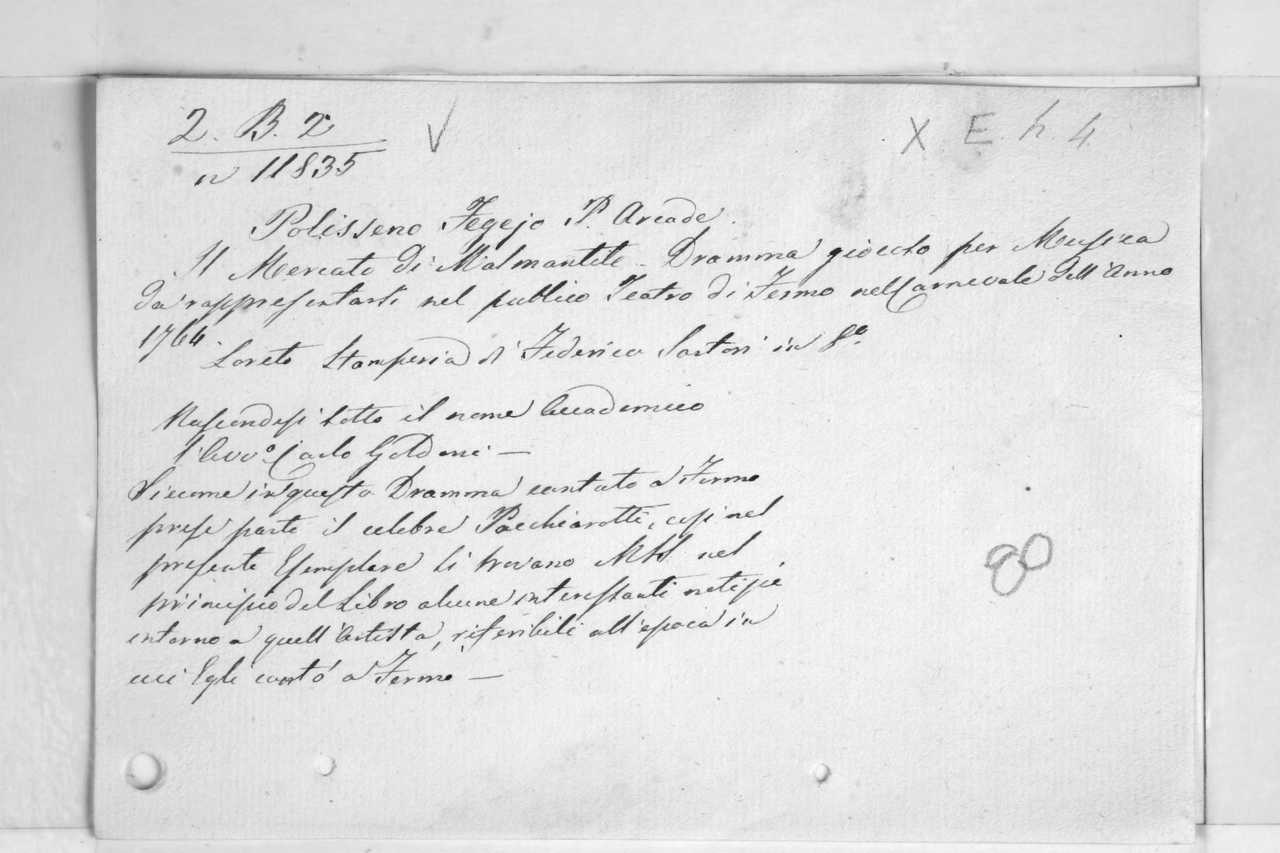 2. B. 2 V X E. h. 4
n 11835
Polisseno Fegejo P. Arcade.
Il Mercato di Malmantile - Dramma giocoso per Musica
da rappresentarsi nel publico Teatro di Fermo nel Carnevale dell'Anno
1764
Loreto Stamperia di Federico Sartori in 8.º
Nascondesi sotto il nome Accademico
l'Avv.º Carlo Goldoni —
Siccome in questo Dramma cantato a Fermo
prese parte il celebre Pacchiarotti, così nel
presente Esemplare si trovano MSS. nel
principio del Libro alcune interessanti notizie
intorno a quell'Artista, riferibili all'epoca in
cui Egli cantò a Fermo —
80